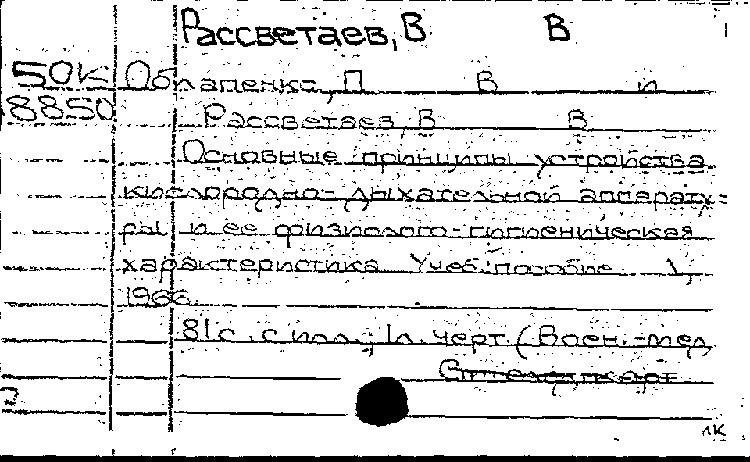 Рассветаев, В В
50К Облапенко, П В и
8850 Рассветаев, В В
Основные принципы устройства
кислородно-дыхательной аппарату-
ры и ее физиолого-гигиеническая
характеристика. Учеб. пособие. Л,
1966.
81с. с илл.; 1л. черт. (Воен.-мед
лк